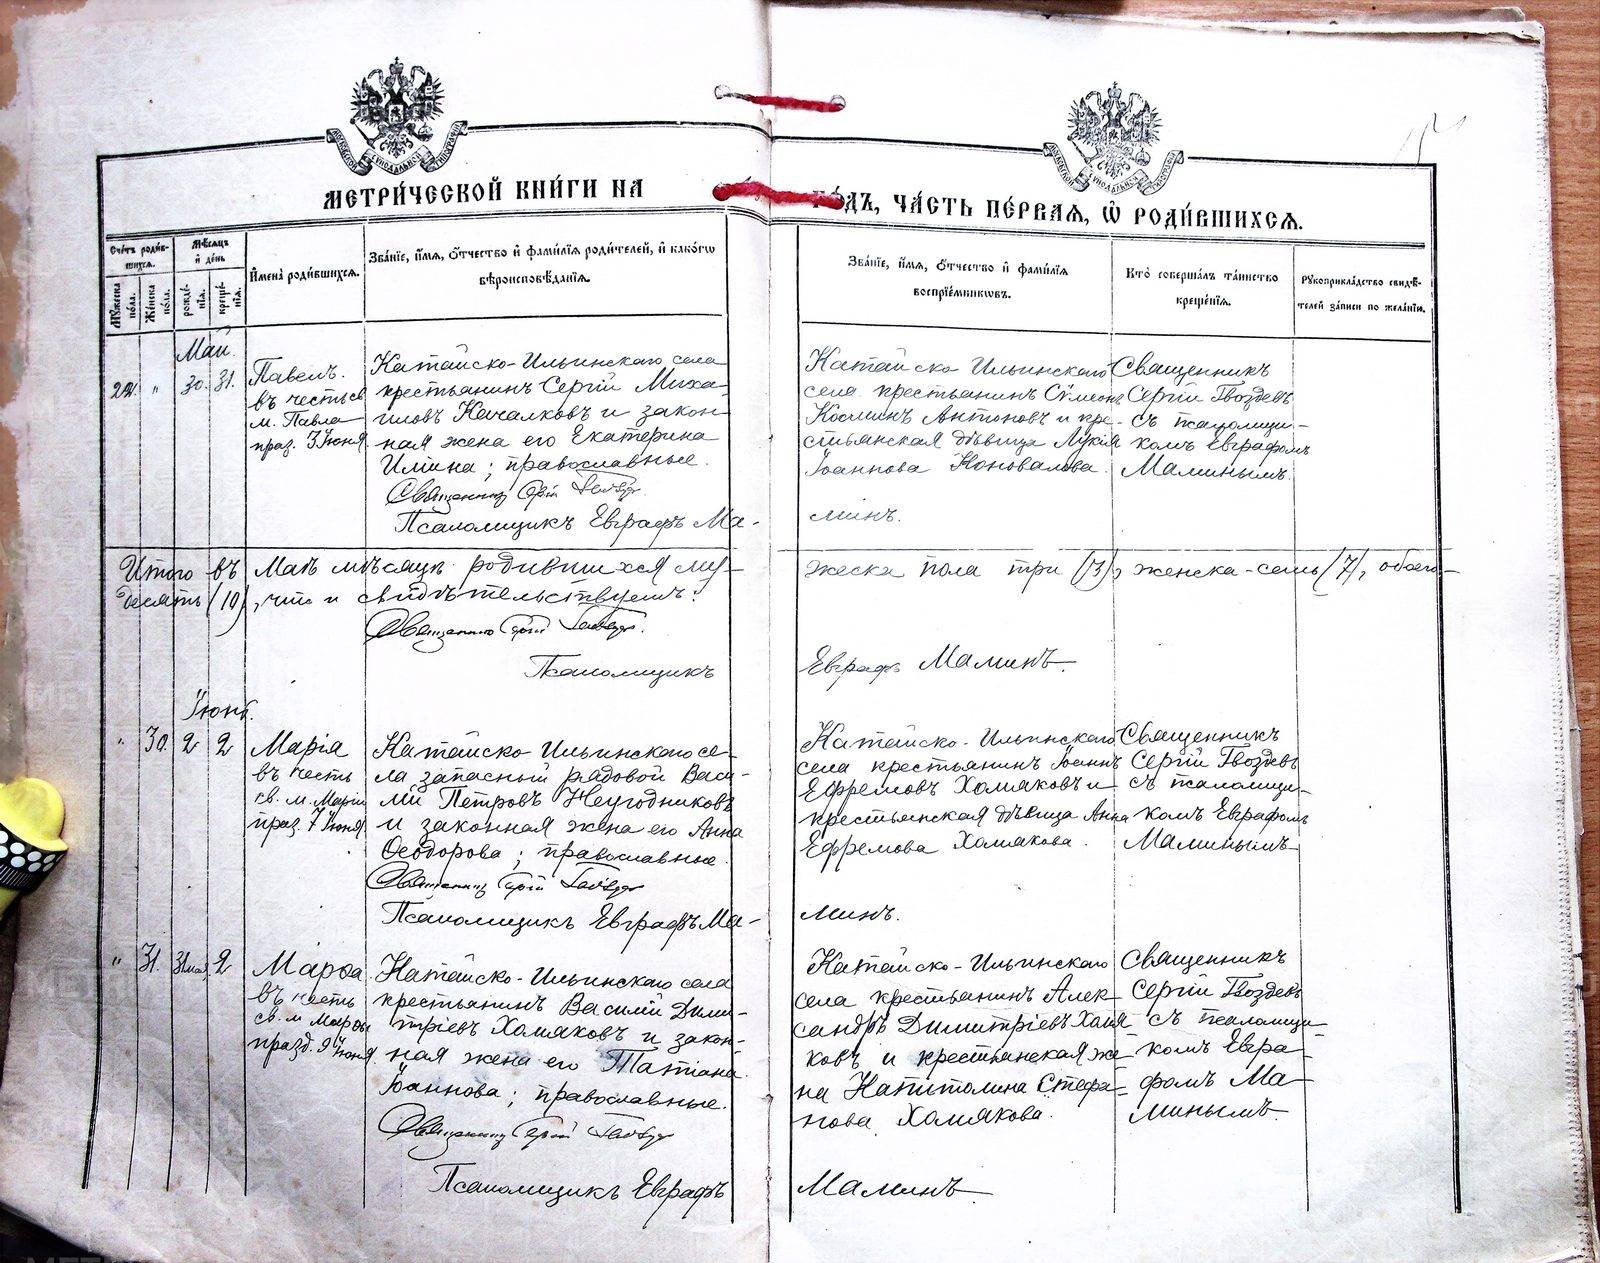 МЕТРИ́ЧЕСКОЙ КНИ́ГИ НА
ГО́ДЪ, ЧА́СТЬ ПЕ́РВАЯ, Ѽ РОДИ́ВШИХСЯ.
Сче́тъ роди́в-
шихся.
Му́жеска
по́ла.
Же́нска
по́ла.
Мѣ́сяцъ
и де́нь
рожде́-
нія.
креще́-
нія.
Имена̀ роди́вшихся.
Зва́ніе, и́мя, о́тчество и фами́лія роди́телей, и како́гѡ
вѣроисповѣ́данія.
Зва́ніе, и́мя, о́тчество и фами́лія
воспріе́мникѡвъ.
Кто̀ соверша́лъ та́инство
креще́нія.
Рукоприкла́дство свидѣ́-
телей за́писи по жела́нію.
Май.
30. 31.
Павелъ.
въ честь св
м. Павла
праз. 3 Іюня
Катайско-Ильинскаго села
крестьянинъ Сергій Миха-
иловъ Качалковъ и закон-
ная жена его Екатерина
Иліина; православные.
Священникъ Сергій Гвоздевъ
Псаломщикъ Евграфъ Ма-
Катайско Ильинскаго
села крестьянинъ Сѵмеонъ
Косминъ Антоновъ и кре-
стьянская дѣвица Лукія
Іоаннова Коновалова.
минъ.
Священникъ
Сергій Гвоздевъ
съ псаломщи-
комъ Евграфомъ
Маминымъ.
Итого въ Маѣ мѣсяцѣ родившихся му-
жеска пола три (3), женска-семь (7), обоего-
десять (10), что и свидѣтельствуемъ:
Священникъ Сергій Гвоздевъ.
Псаломщикъ
Евграфъ Маминъ.
Іюнь.
" 30. 2 2
Марія
въ честь
св. м. Маріи
праз. 7 Іюня
Катайско Ильинскаго се-
ла запасный рядовой Васи-
лій Петровъ Неугодниковъ
и законная жена его Анна
Ѳеодорова; православные.
Священникъ Сергій Гвоздевъ
Псаломщикъ Евграфъ Ма-
Катайско-Ильинскаго
села крестьянинъ Іоаннъ
Ефремовъ Хомяковъ и
крестьянская дѣвица Анна
Ефремова Хомякова.
минъ.
Священникъ
Сергій Гвоздевъ
съ псаломщи-
комъ Евграфомъ
Маминымъ
" 31. 31 мая 2
Марѳа
въ честь
св. м Марѳы
празд. 9 Іюня
Катайско-Ильинскаго села
крестьянинъ Василій Дими-
тріевъ Хомяковъ и закон-
ная жена его Татіана
Іоаннова; православные.
Священникъ Сергій Гвоздевъ
Псаломщикъ Евграфъ
Катайско-Ильинскаго
села крестьянинъ Алек-
сандръ Димитріевъ Хомя-
ковъ и крестьянская же-
на Капитолина Стефа-
нова Хомякова.
Маминъ
Священникъ
Сергій Гвоздевъ
съ псаломщи-
комъ Евгра-
фомъ Ма-
минымъ